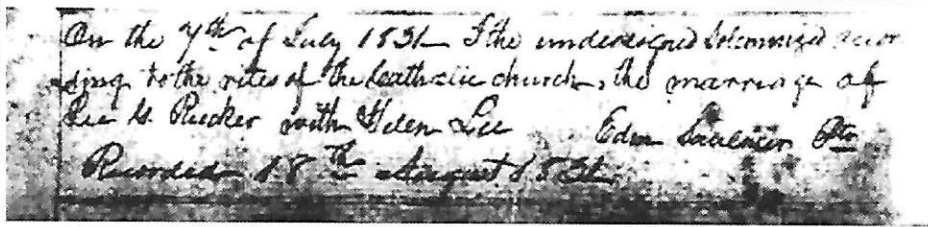 On the 7th of July 1831 I the undersigned Solemnized accor
ding to the rites of the Catholic church, the marriage of
Geo G. Rucker with Helen Lee Edm Saulnier Ptr
Recorded 18th August 1831